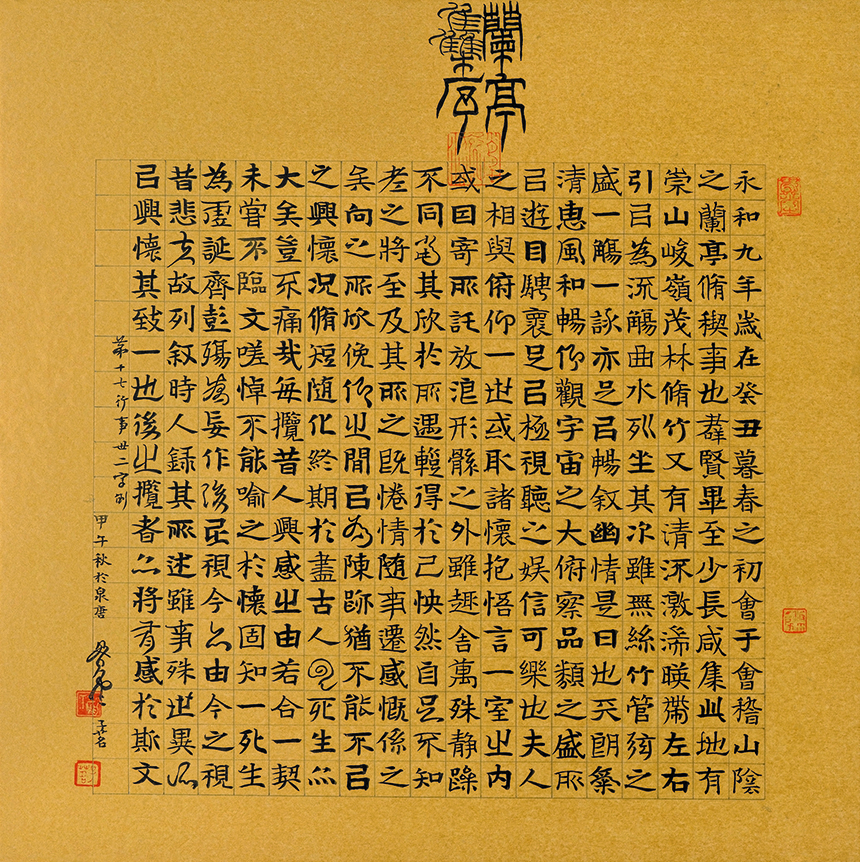 蘭亭
雧序
永和九年歲在癸丑暮春之初會于會稽山陰
之蘭亭脩稧事也羣賢畢至少長咸集此地有
崇山峻嶺茂林脩竹又有清流激湍暎帶左右
引㠯為流觴曲水列坐其次雖無絲竹管弦之
盛一觴一詠亦足㠯暢敘幽情是日也天朗氣
清惠風和暢仰觀宇宙之大俯察品類之盛所
㠯遊目騁懷足㠯極視聽之娛信可樂也夫人
之相與俯仰一世或取諸懷抱悟言一室之內
或因寄所託放浪形骸之外雖趣舍萬殊静躁
不同當其欣於所遇蹔得於己怏然自足不知
老之將至及其所之既惓情隨事遷感慨係之
矣向之所欣俛仰之閒㠯為陳跡猶不能不㠯
之興懷況脩短隨化終期於盡古人云死生亦
大矣豈不痛哉每攬昔人興感之由若合一契
未嘗不臨文嗟悼不能喻之於懷固知一死生
為虛誕齊彭殤為妄作後之視今亦由今之視
昔悲夫故列敘時人錄其所述雖事殊世異所
㠯興懷其致一也後之攬者亦將有感於斯文
第十七行事世二字倒
甲午秋於泉唐